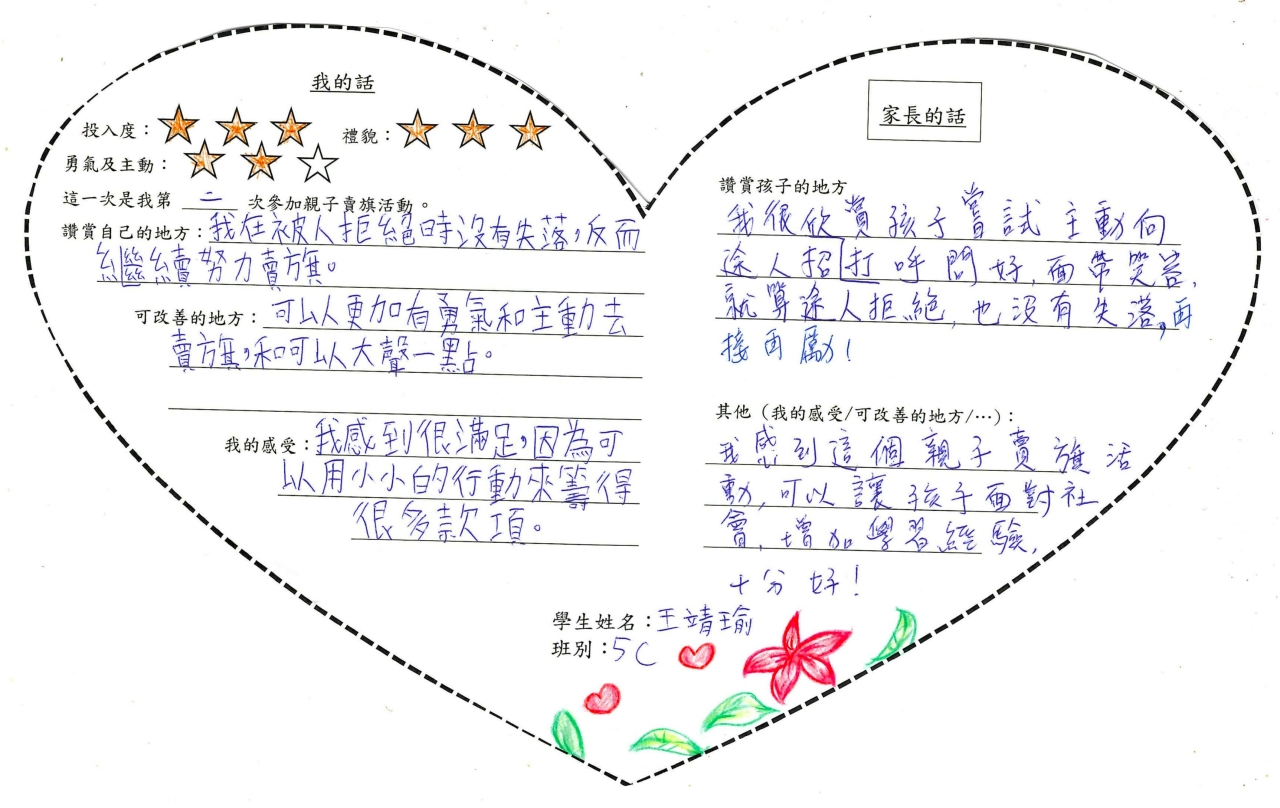 我的話
投入度： 禮貌：
勇氣及主動：
這一次是我第 二 次參加親子賣旗活動。
讚賞自己的地方：我在被人拒絕時沒有失落，反而
繼續努力賣旗。
可改善的地方：可以更加有勇氣和主動去
賣旗，和可以大聲一點。
我的感受：我感到很滿足，因為可
以用小小的行動來籌得
很多款項。
家長的話
讚賞孩子的地方
我很欣賞孩子嘗試主動向
途人招打呼問好，面帶笑容，
就算途人拒絕，也沒有失落，再
接再勵！
其他（我的感受/可改善的地方/…）：
我感到這個親子賣旗活
動，可以讓孩子面對社
會，增加學習經驗，
十分好！
學生姓名：王靖瑜
班別：5C